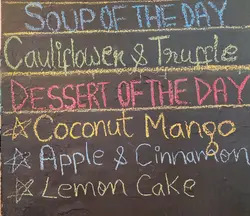 SOUP OF THE DAY
Cauliflower & Truffle
DESSERT OF THE DAY
Coconut Mango
Apple & Cinnamon
Lemon Cake